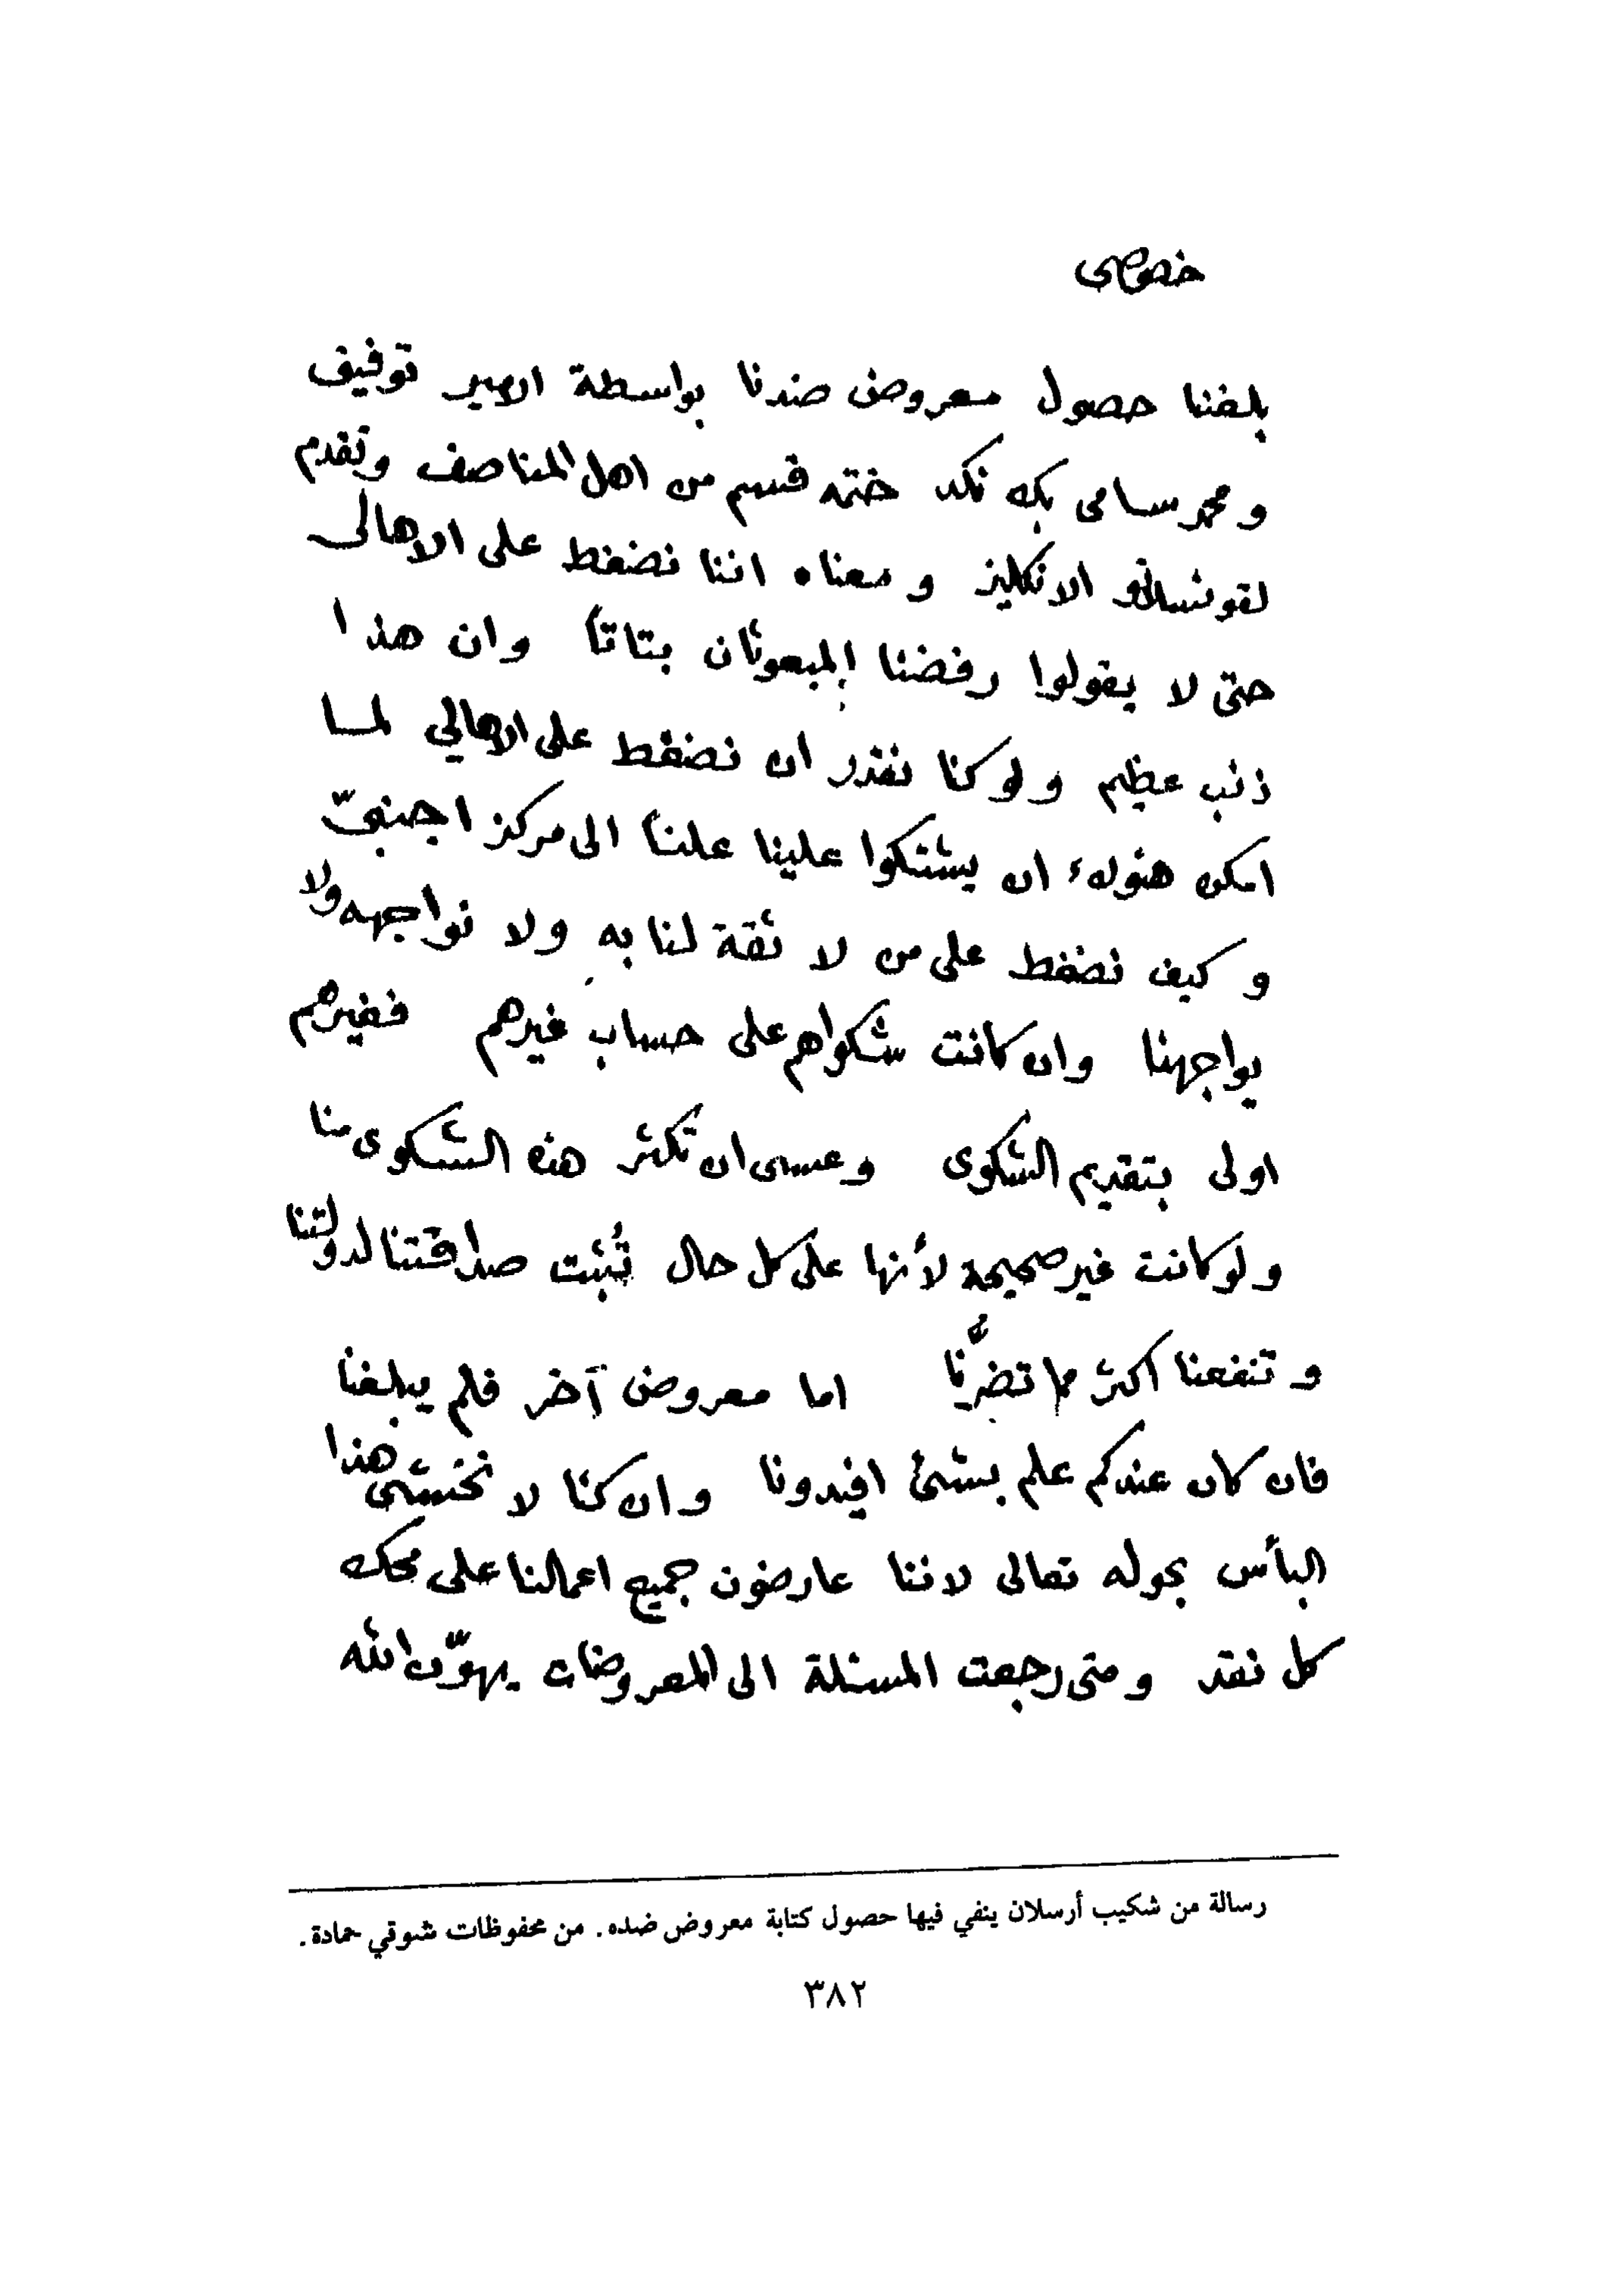 خصوصي
بلغنا حصول معروض ضدنا بواسطة الامير توفيق
ومحمد سامي بك نكد ختمه قسم من اهل المناصف وتقدم
الانكليز ومعناه اننا نضغط على الاهالي
حتى لا يقولوا رفضنا المبعوثان بتاتاً وان هذا
ذنب عظيم ولو كنا نقدر ان نضغط على الاهالي لما
امكن هؤلاء ان يشتكوا علينا علناً الى مركز اجنبيّ
وكيف نضغط على من لا ثقة لنا به ولا نواجهه ولا
يواجهنا وان كانت شكواهم على حساب غيرهم فغيرهم
اولى بتقديم الشكوى وعسى ان تكثر هذه الشكوى منا
ولو كانت غير صحيحة لأنها على كل حال تُثبت صداقتنا لدولتنا
وتنفعنا اكثر مما تضرُّنا اما معروض آخر فلم يبلغنا
فان كان عندكم علم بشئ افيدونا وان كنّا لا نخشى هذا
البأس بحوله تعالى لاننا عارضون جميع اعمالنا على محك
كل نقد ومتى رجعت المسئلة الى المعروضات يهوّن الله
رسالة من شكيب أرسلان ينفي فيها حصول كتابة معروض ضده. من محفوظات شوقي حمادة.
٣٨٢